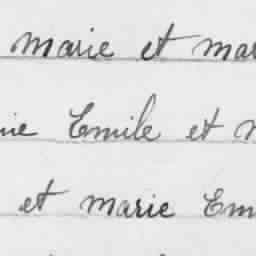 marie et mar
ie Emile et
et marie Em